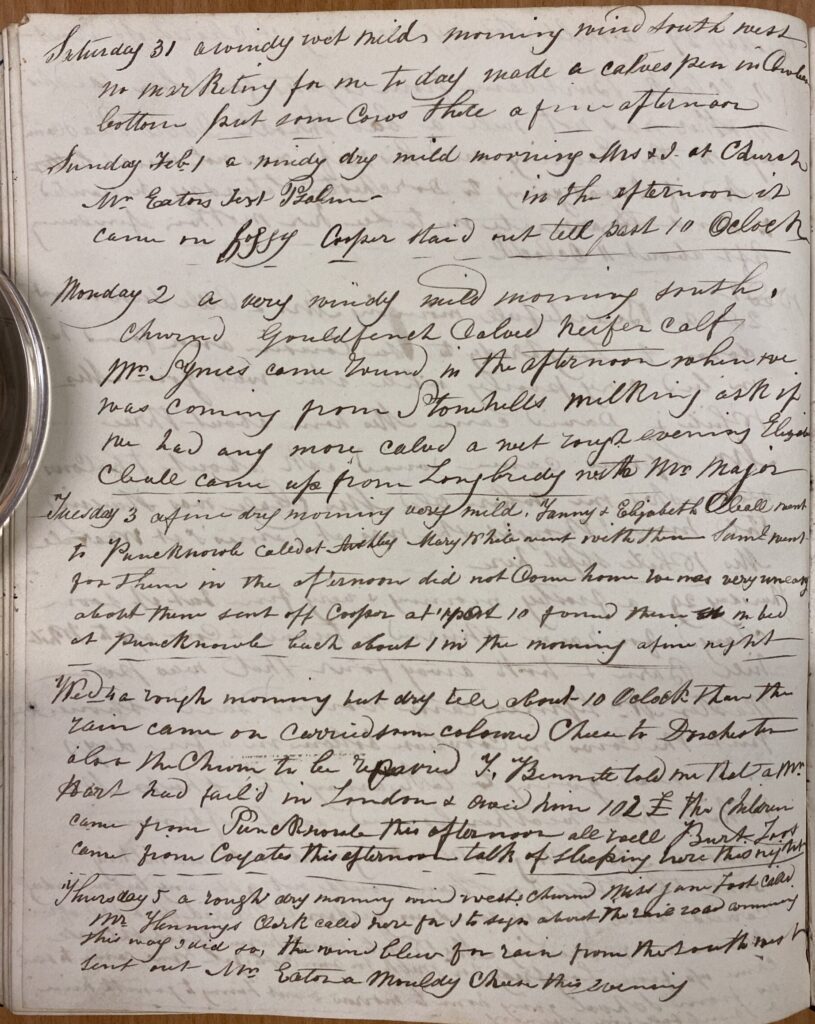 Saturday 31 a windy wet mild morning wind south west
no marketing for me to day made a calves pen in
bottom put som Cows there a fine afternoon
Sunday Feb 1 a windy dry mild morning Mrs & I at Church
Mr Eatons Text Psalm in the afternoon it
came on foggy Cooper staid out tell past 10 Oclock
Monday 2 a very windy mild morning south,
churnd Gouldfinch Calved heifer calf
Mr Symes came round in the afternoon when we
was coming from Stonehells milking ask if
we had any more calved a wet rough evening
Cleall came up from Longbredy with Mr Major
Tuesday 3 a fine dry morning very mild, Fanny & Elizabeth Cleall went
to Puncknowle caled at Mary White went with them Saml went
for them in the afternoon did not Come home we was very uneasy
about them sent off Cooper at 10 found them in bed
at Puncknowle back about 1 in the morning a fine night
Wed 4 a rough morning but dry tele about 10 Oclock than the
rain came on carried som coloured Cheese to Dorchester
also the Churn to be T, Bennett told me that a Mr
Hart had fail'd in London & owed him 102 £ the Children
came from Puncknowle this afternoon all well Burt Loot
came from Coyates this afternoon talk of sleeping here this night
Thursday 5 a rough dry morning wind west, churnd Miss Jane Loot caled
Mr Hennings Clerk caled here for I to sign about the rail road comming
this way I did so, the wind blew for rain from the south west
sent out Mr Eaton a Mouldy Cheese this evening